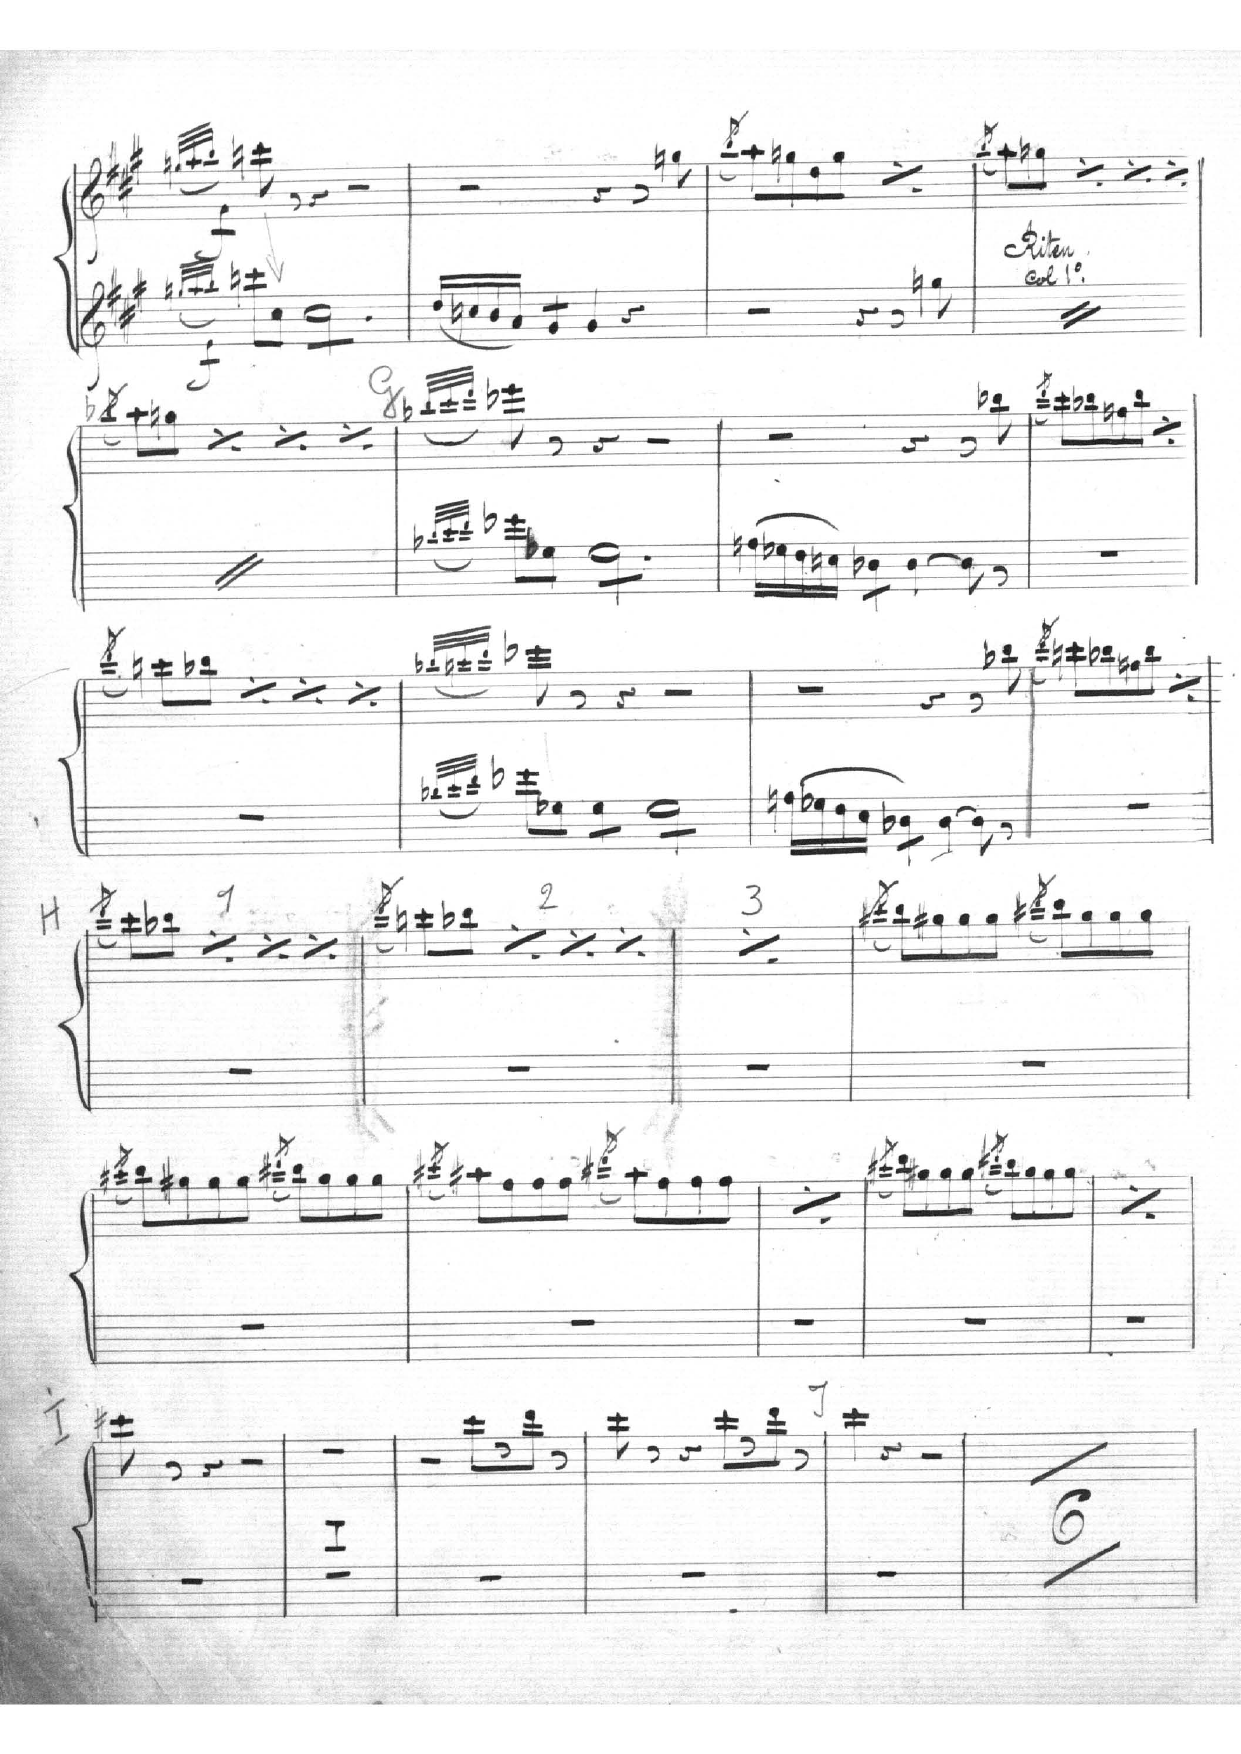 f
Riten.
Col 1º.
f
G
H 1 2 3
I J
I
6